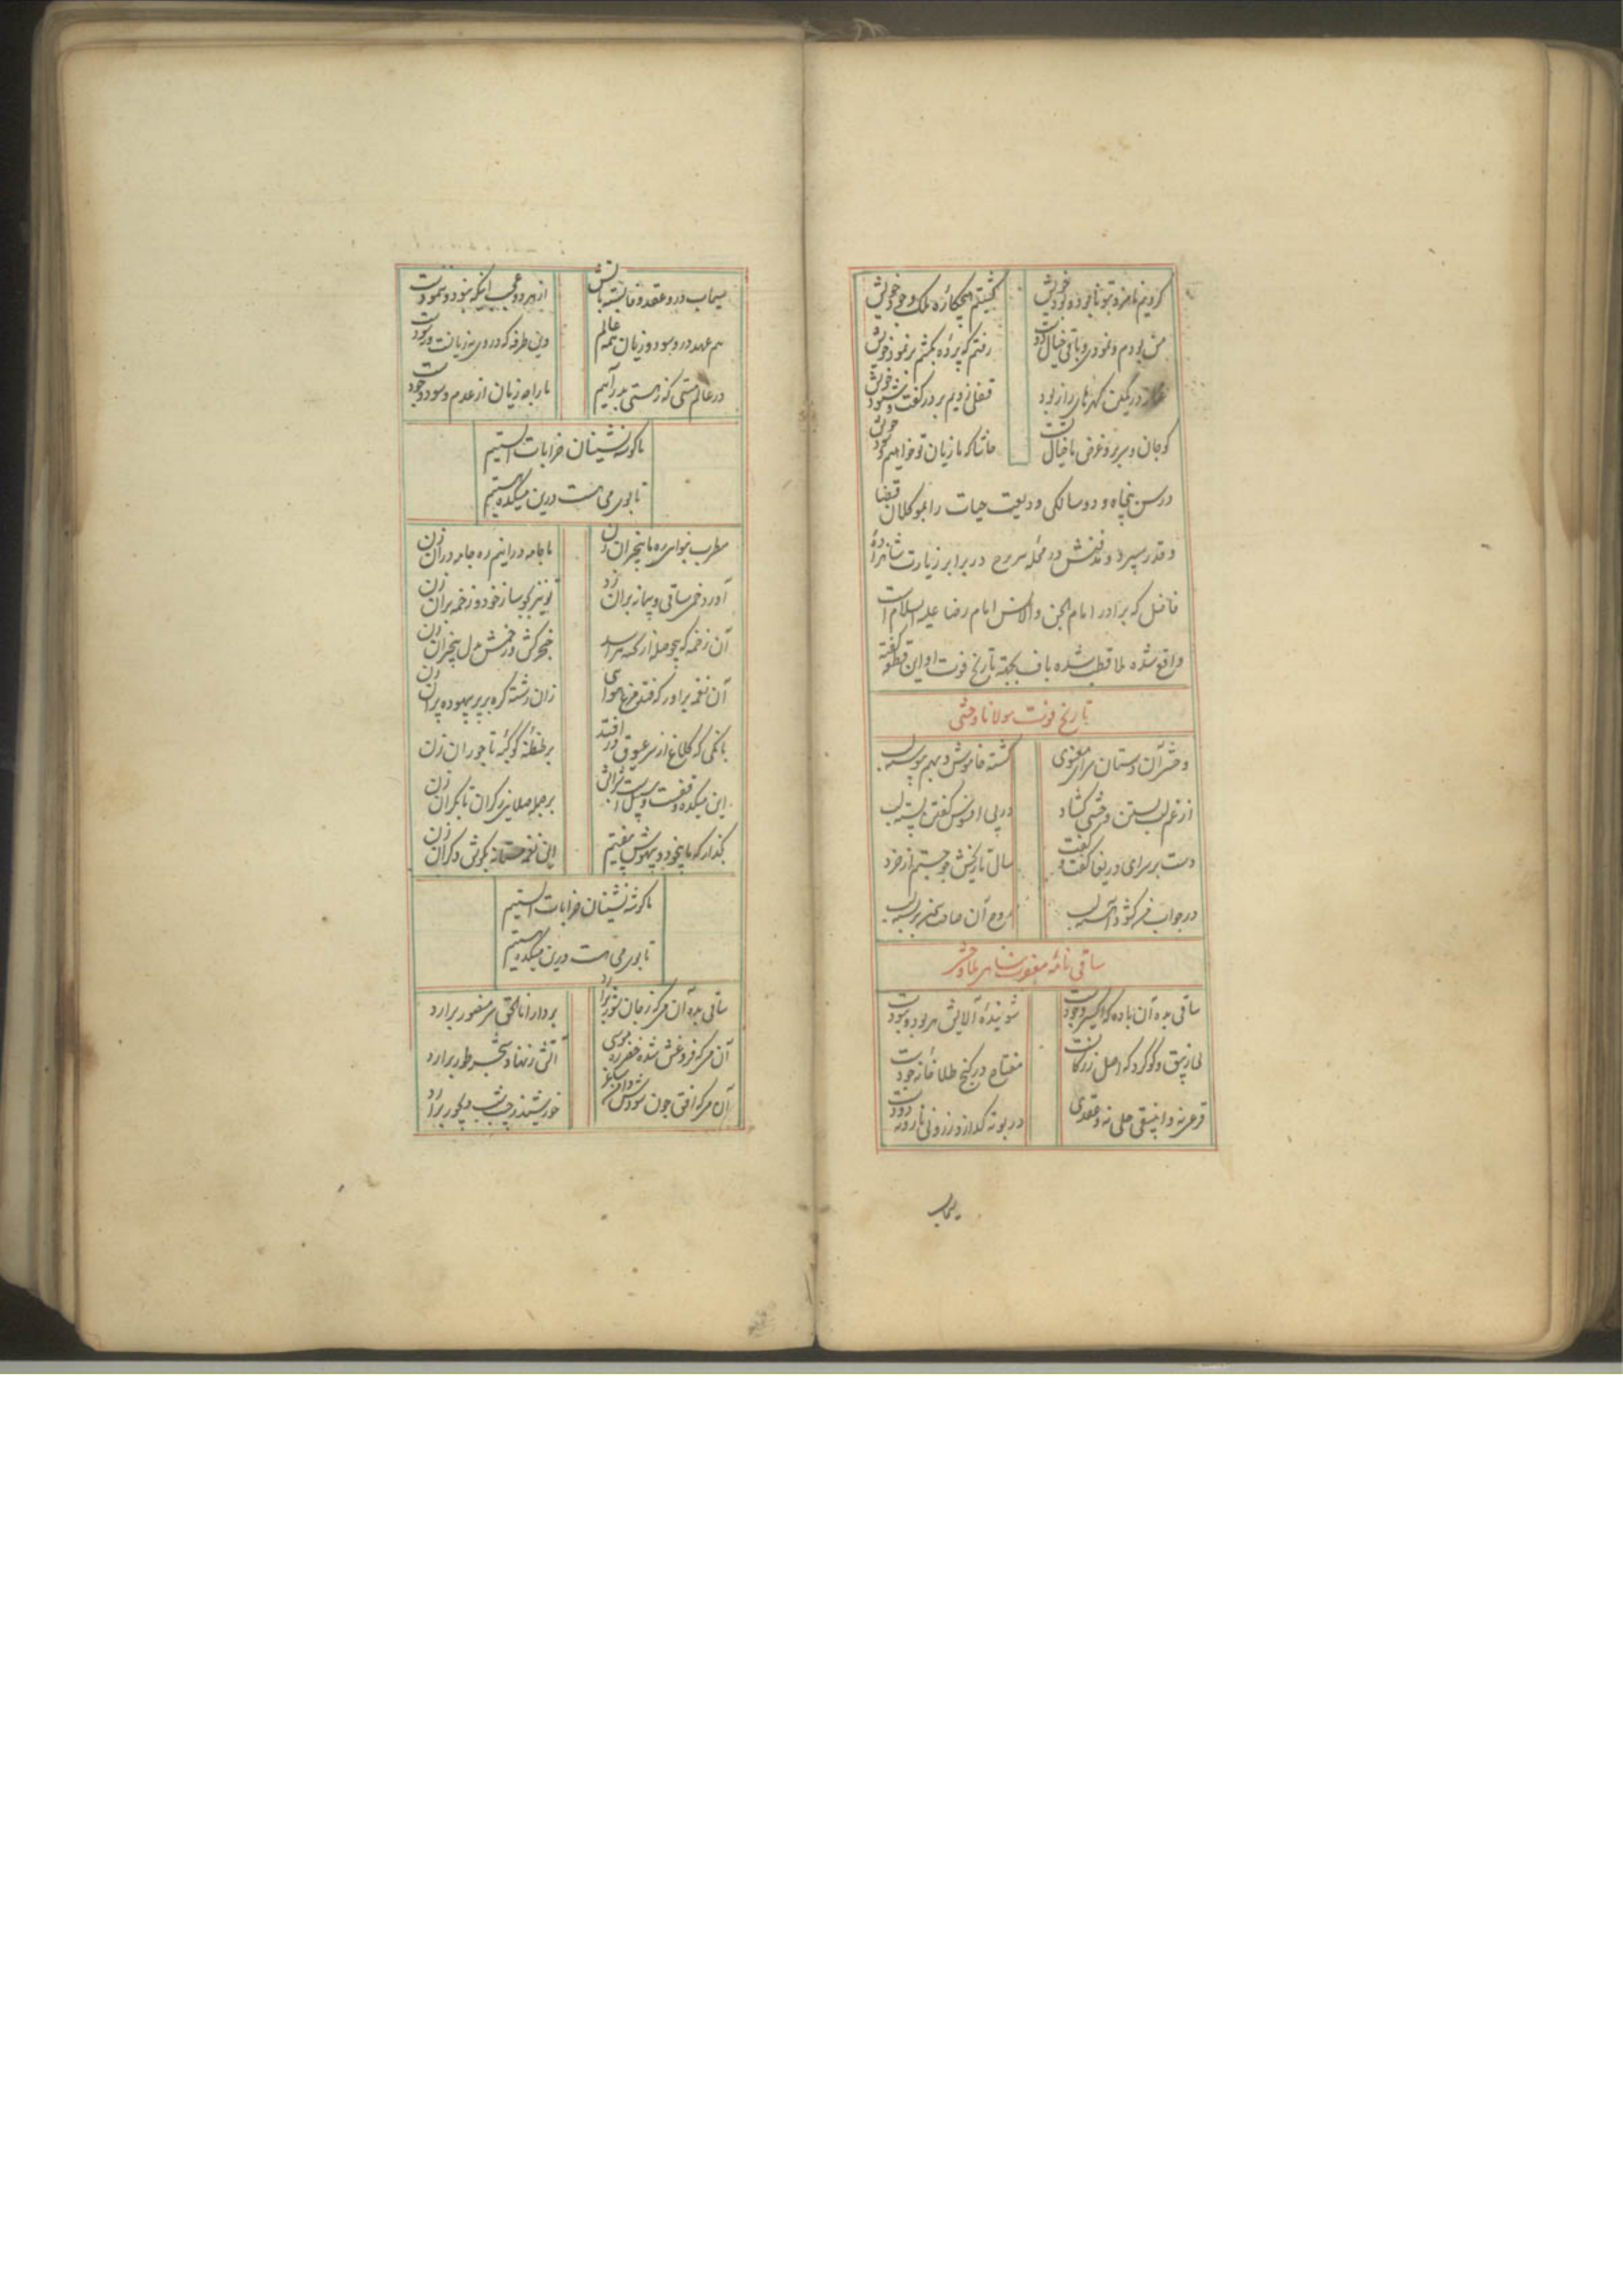 کردیم نامزد بتو نابود و بود خویش
گشتیم هیچکاره ملک وجود خویش
من بودم و نمودی و باقی خیال تو
رفتم که پرده بکشم بر نمود خویش
غماز در کمین گهرهای راز بود
قفلی زدیم بر در گفت و شنود خویش
گو جان و سر برو غرض ما خیال تست
حاشا که ما زیان تو خواهیم و سود خویش
در سن پنجاه و دو سالکی ودیعت حیات را بموکلان قضا
و قدر سپرد و مدفنش در محله سر برج در برابر زیارت شاهزاده
فاضل که برادر امام الجن والانس امام رضا علیه السلام است
واقع شده ملا قطب شده باف بجهة تاریخ فوت او این قطعه گفته
تاریخ فوت مولانا وحشی
وحشی آن دستان سرای معنوی
گشته خاموش و بهم پیوسته لب
از غم لب بستن وحشی کشاد
در پی افسوس گفتن پسته لب
سال تاریخش چو جستم از خرد
دست بر سر ای دریغا گفت و گفت
در جواب من کشود آهسته لب
ساقی نامه مغفرت پناهی ملا وحشی
ساقی بده آن باده که اکسیر وجودست
شوینده آلایش هر بود و نبودست
بی زیبق و گوگرد که اصل زر کانست
مفتاح در گنج طلا خانه جودست
قرعی نه و انبیقی حلی نه و عقدی
در بوته گداز زر و نی نار و نه دودست
سیماب
سیماب درو عقد وفا بسته بآتش
از هر دو عجب اینکه نبود و نه نمودست
هم عهد درو سود و زیان همه عالم
وین طرفه که دروی نه زیانست و نه سودست
در عالم هستی که ز هستی بدر آییم
ما را چه زیان از عدم و سود وجودست
ما گوشه نشینان خرابات الستیم
تا بوی می هست درین میکده مستیم
مطرب بنوای ره ما بیخبران زن
تا جامه درانیم ره جامه دران زن
آورد خمی ساقی و پیمانه بران زد
تو نیز بگو ساز خود و زخمه بران زن
آن زخمه که بیحوصله از کنه هراسد
خنجر کش و زخمش بدل بیخبران زن
آن نغمه برآور که فتد مرغ هوائی
زان رشته گره بر پر بیهوده پران زن
بانگی که کلاغ از سر عیوق در افتد
بر طنطنه کوکبه تاجوران زن
این میکده وقفست و سبیلست شرابش
بر جمله صلایی ز کران تا بکران زن
بگذار که ما بیخود و بیهوش بیفتیم
این نغمه مستانه بگوش دگران زن
ما گوشه نشینان خرابات الستیم
تا بوی می هست درین میکده مستیم
ساقی بده آن می که ز جان شور برآرد
بر دار اناالحق سر منصور برآرد
آن می که فروغش شده خضر ره موسی
آتش ز نهاد شجر طور برآرد
آن می که افق چون شودش دامن ساغر
خورشید ز جیب شب دیجور برآرد